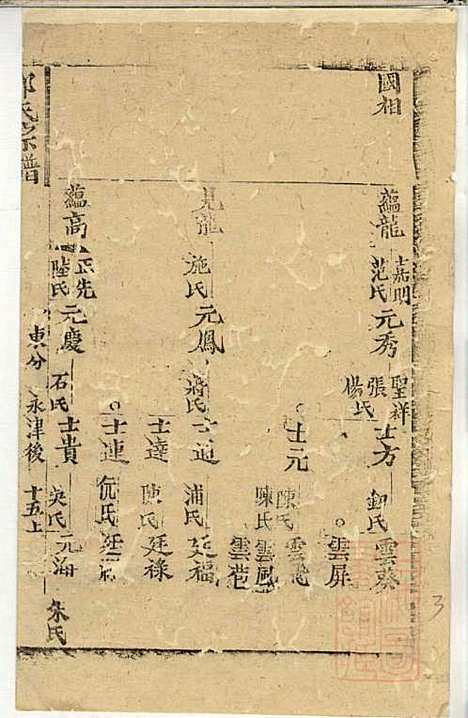 國相
蘊龍 士嘉明 范氏 元秀 聖祥 張氏 楊氏 士方 鈕氏 雲葵
雲屏
士元 陳氏 陳氏 雲龍 雲鳳
雲苞
見龍 施氏 元鳳 蔣氏 士道 浦氏 廷福
士達 陳氏 廷祿
士連 阮氏 廷
蘊高 正先 陸氏 元慶 石氏 士貴 吳氏 元海 朱氏
東分 永津後 十五上
氏宗譜
3